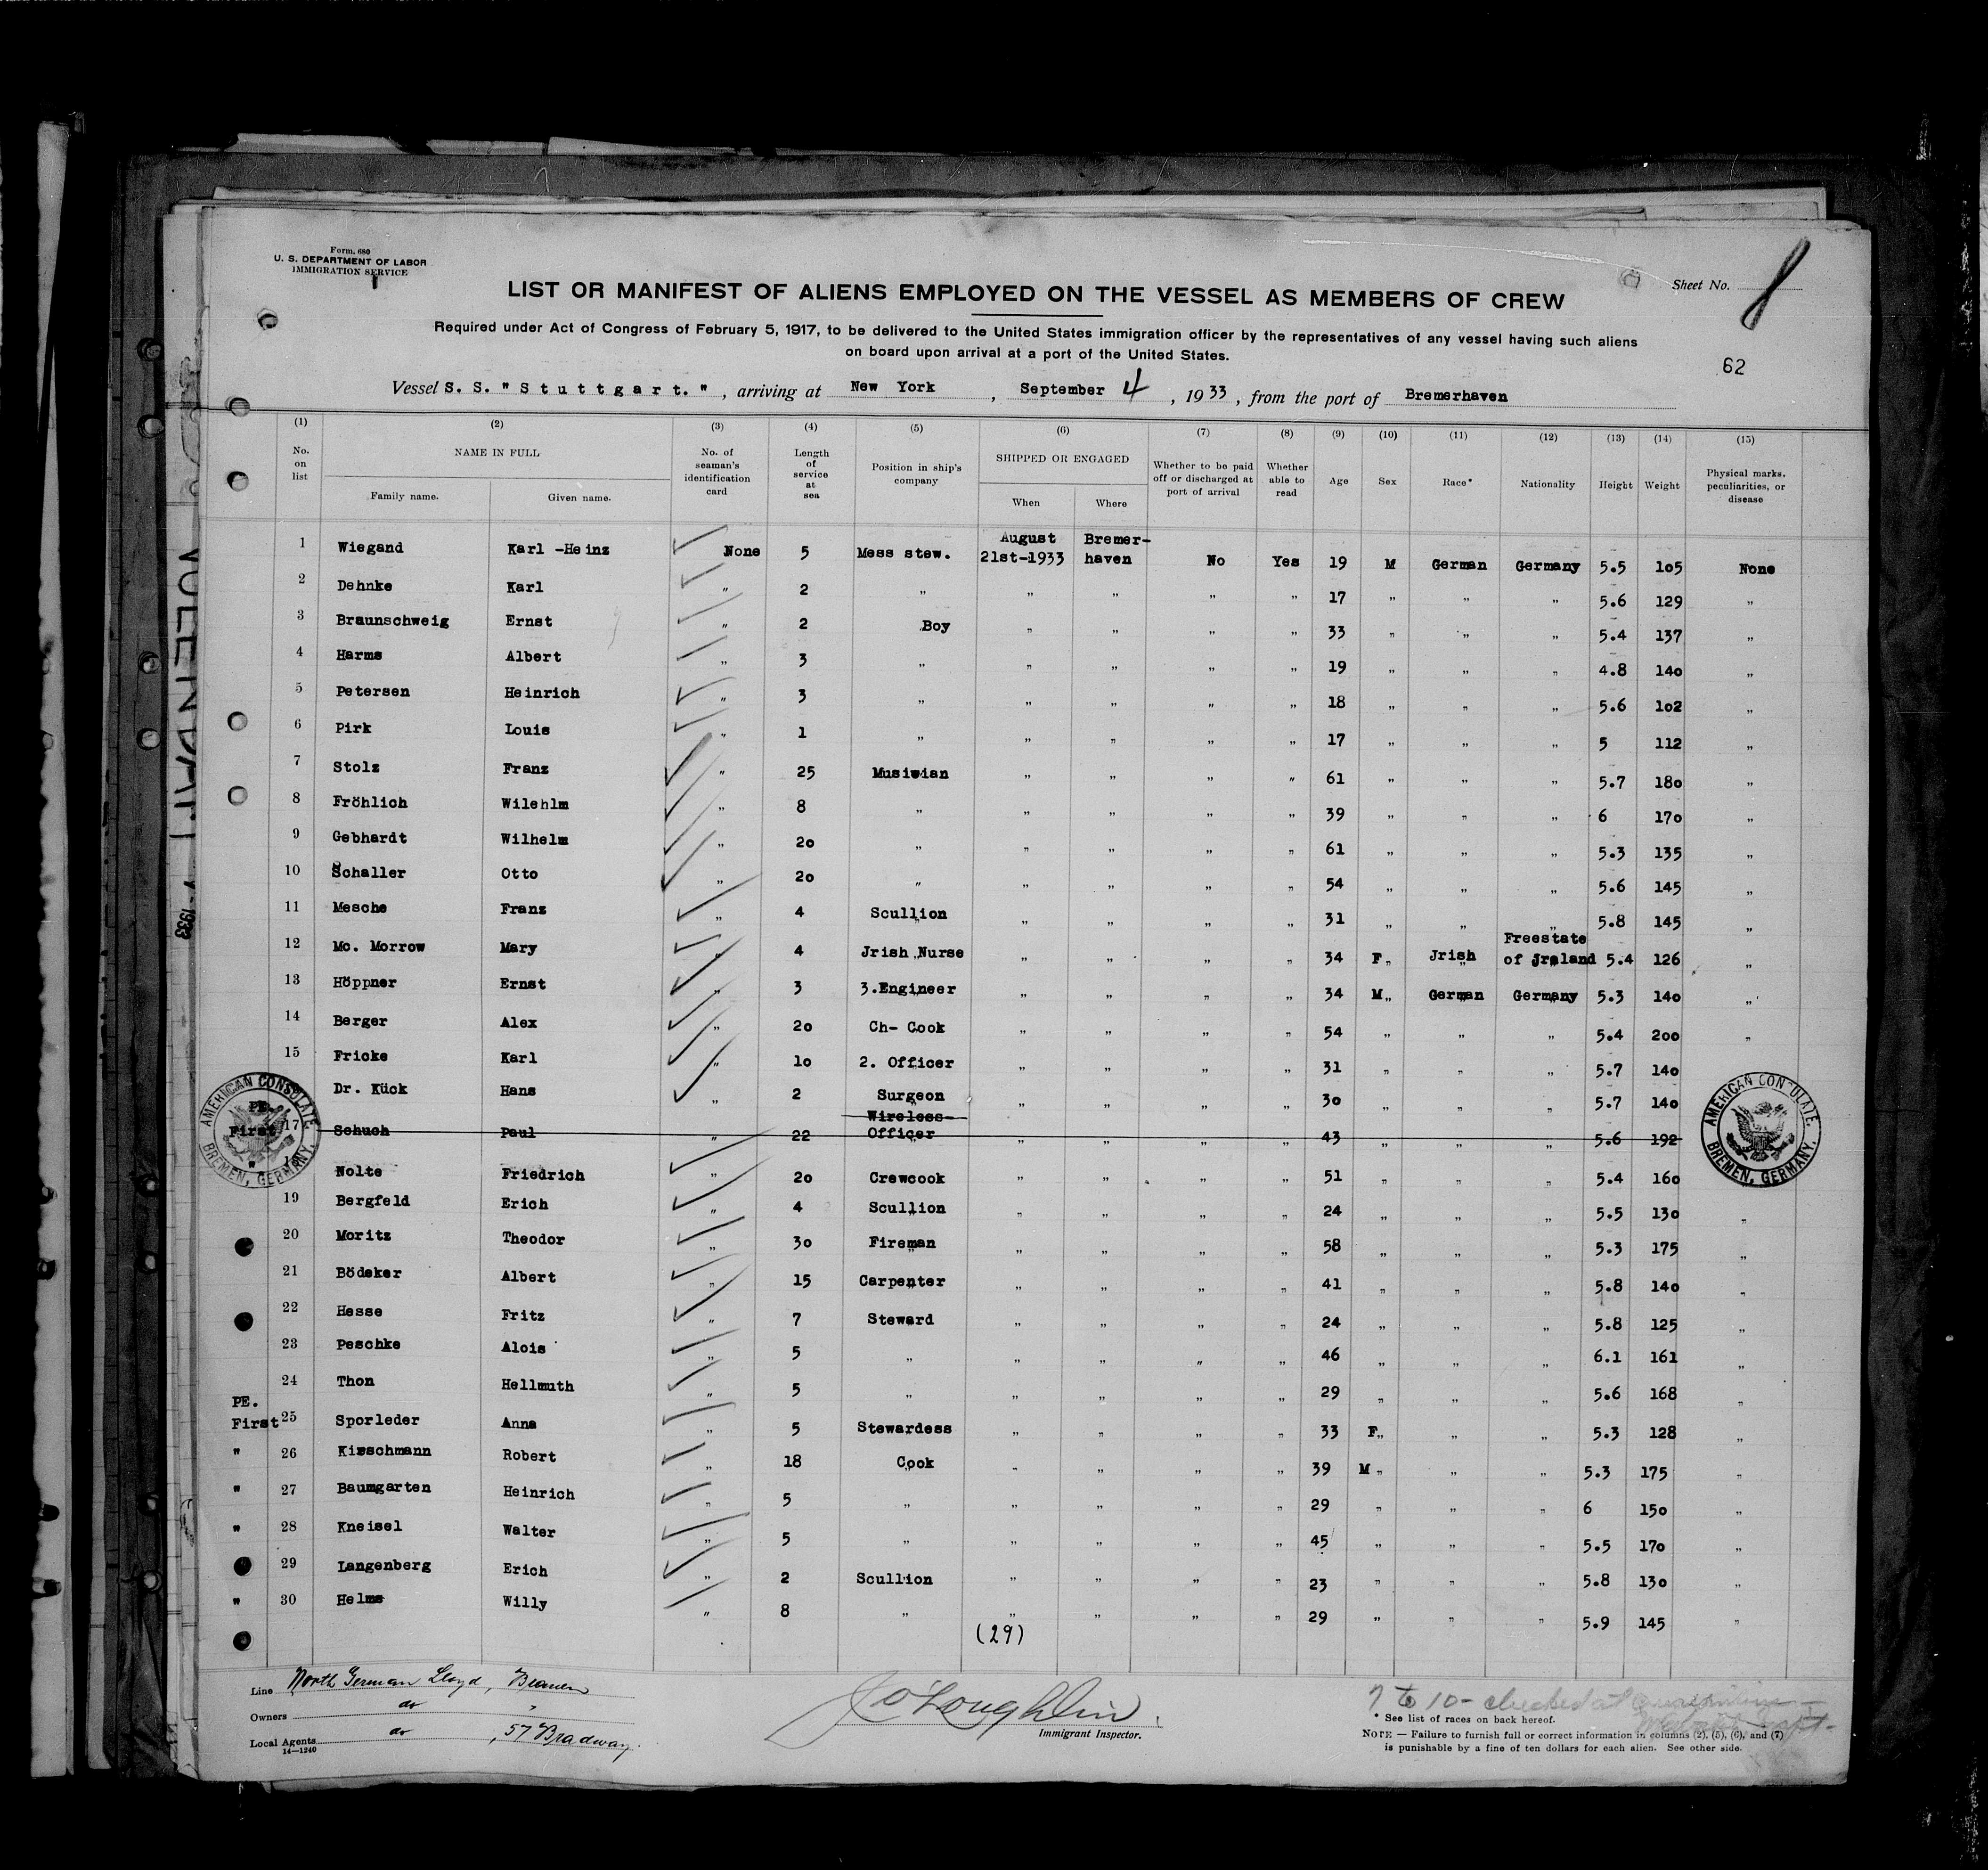 Form. 680
U. S. DEPARTMENT OF LABOR
IMMIGRATION SERVICE
Sheet No. 8
LIST OR MANIFEST OF ALIENS EMPLOYED ON THE VESSEL AS MEMBERS OF CREW
Required under Act of Congress of February 5, 1917, to be delivered to the United States immigration officer by the representatives of any vessel having such aliens
on board upon arrival at a port of the United States.
62
Vessel S. S. "Stuttgart.", arriving at New York, September 4, 1933, from the port of Bremerhaven
(1) (2) (3) (4) (5) (6) (7) (8) (9) (10) (11) (12) (13) (14) (15)
No. on list NAME IN FULL Family name. Given name. No. of seaman's identification card Length of service at sea Position in ship's company SHIPPED OR ENGAGED When Where Whether to be paid off or discharged at port of arrival Whether able to read Age Sex Race* Nationality Height Weight Physical marks, peculiarities, or disease
1 Wiegand Karl -Heinz None 5 Mess stew. August 21st-1933 Bremer-haven No Yes 19 M German Germany 5.5 105 None
2 Dehnke Karl " 2 " " " " " 17 " " " 5.6 129 "
3 Braunschweig Ernst " 2 Boy " " " " 33 " " " 5.4 137 "
4 Harms Albert " 3 " " " " " 19 " " " 4.8 140 "
5 Petersen Heinrich " 3 " " " " " 18 " " " 5.6 102 "
6 Pirk Louis " 1 " " " " " 17 " " " 5 112 "
7 Stolz Franz " 25 Musiwian " " " " 61 " " " 5.7 180 "
8 Fröhlich Wilehlm " 8 " " " " " 39 " " " 6 170 "
9 Gebhardt Wilhelm " 20 " " " " " 61 " " " 5.3 135 "
10 Schaller Otto " 20 " " " " " 54 " " " 5.6 145 "
11 Mesche Franz " 4 Scullion " " " " 31 " " " 5.8 145 "
12 Mc. Morrow Mary " 4 Jrish Nurse " " " " 34 F " Jrish Freestate of Jreland 5.4 126 "
13 Höppner Ernst " 3 3.Engineer " " " " 34 M " German Germany 5.3 140 "
14 Berger Alex " 20 Ch- Cook " " " " 54 " " " 5.4 200 "
15 Fricke Karl " 10 2. Officer " " " " 31 " " " 5.7 140
Dr. Kück Hans " 2 Surgeon " " " " 30 " " " 5.7 140
PE. First 17 Schuch Paul " 22 Wireless- Officer " " " " 43 " " " 5.6 192
" Nolte Friedrich " 20 Crewcook " " " " 51 " " " 5.4 160
19 Bergfeld Erich " 4 Scullion " " " " 24 " " " 5.5 130 "
20 Moritz Theodor " 30 Fireman " " " " 58 " " " 5.3 175 "
21 Bödeker Albert " 15 Carpenter " " " " 41 " " " 5.8 140 "
22 Hesse Fritz " 7 Steward " " " " 24 " " " 5.8 125 "
23 Peschke Alois " 5 " " " " " 46 " " " 6.1 161 "
24 Thon Hellmuth " 5 " " " " " 29 " " " 5.6 168 "
PE. First 25 Sporleder Anna " 5 Stewardess " " " " 33 F " " " 5.3 128 "
" 26 Kirschmann Robert " 18 Cook " " " " 39 M " " " 5.3 175 "
" 27 Baumgarten Heinrich " 5 " " " " " 29 " " " 6 150 "
" 28 Kneisel Walter " 5 " " " " " 45 " " " 5.5 170 "
29 Langenberg Erich " 2 Scullion " " " " 23 " " " 5.8 130 "
" 30 Helms Willy " 8 " " " " " 29 " " " 5.9 145 "
(29)
AMERICAN CONSULATE. BREMEN, GERMANY.
AMERICAN CONSULATE. BREMEN, GERMANY.
Line North German Lloyd, Bremen
Owners do "
Local Agents do, 57 Bradway.
14—1240
J O'Loughlin.
Immigrant Inspector.
7 to 10 - checked at
* See list of races on back hereof.
NOTE — Failure to furnish full or correct information in columns (2), (5), (6), and (7)
is punishable by a fine of ten dollars for each alien. See other side.
1933